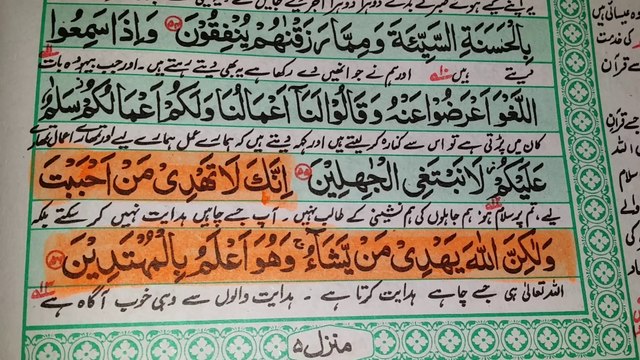 بِالْحَسَنَةِ السَّيِّئَةَ وَمِمَّا رَزَقْنٰهُمْ يُنْفِقُوْنَ ۝۵۴ وَاِذَا سَمِعُوا
دیتے ہیں اور ہم نے جو انہیں دے رکھا ہے یہ بھی دیتے رہتے ہیں۔ اور جب بیہودہ بات
اللَّغْوَ اَعْرَضُوْا عَنْهُ وَقَالُوْا لَنَآ اَعْمَالُنَا وَلَكُمْ اَعْمَالُكُمْ سَلٰمٌ
کان میں پڑتی ہے تو اس سے کنارہ کر لیتے ہیں اور کہہ دیتے ہیں کہ ہمارے عمل ہمارے لیے اور تمہارے اعمال تمہارے
عَلَيْكُمْ لَا نَبْتَغِي الْجٰهِلِيْنَ ۝۵۵ اِنَّكَ لَا تَهْدِيْ مَنْ اَحْبَبْتَ
لیے، تم پر سلام ہو، ہم جاہلوں کی ہم نشینی کے طالب نہیں۔ آپ جسے چاہیں ہدایت نہیں کر سکتے بلکہ
وَلٰكِنَّ اللّٰهَ يَهْدِيْ مَنْ يَّشَآءُ ۚ وَهُوَ اَعْلَمُ بِالْمُهْتَدِيْنَ ۝۵۶
اللہ تعالیٰ ہی جسے چاہے ہدایت کرتا ہے۔ ہدایت والوں سے وہی خوب آگاہ ہے
منزل ۵